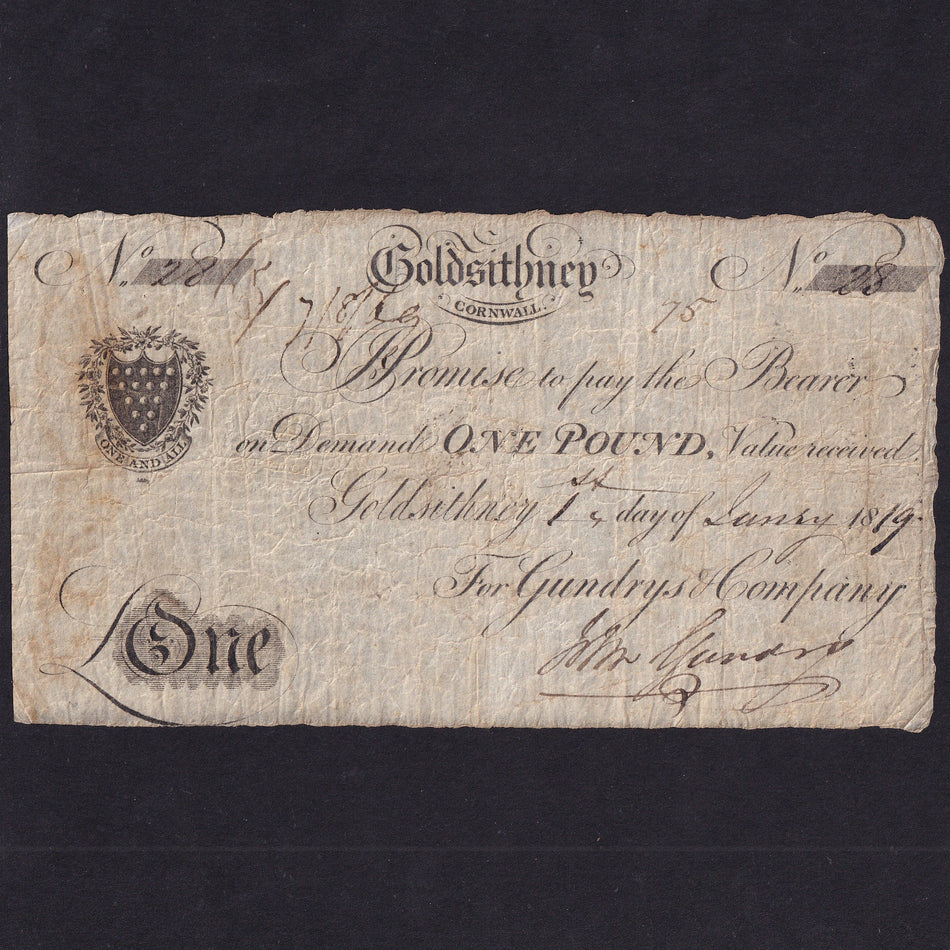 No. 28
Goldsithney
No. 28
CORNWALL.
75
I Promise to pay the Bearer
on Demand ONE POUND, Value received
ONE AND ALL
Goldsithney 1st day of Janry 1819.
For Gundrys & Company
£One
John Gundry